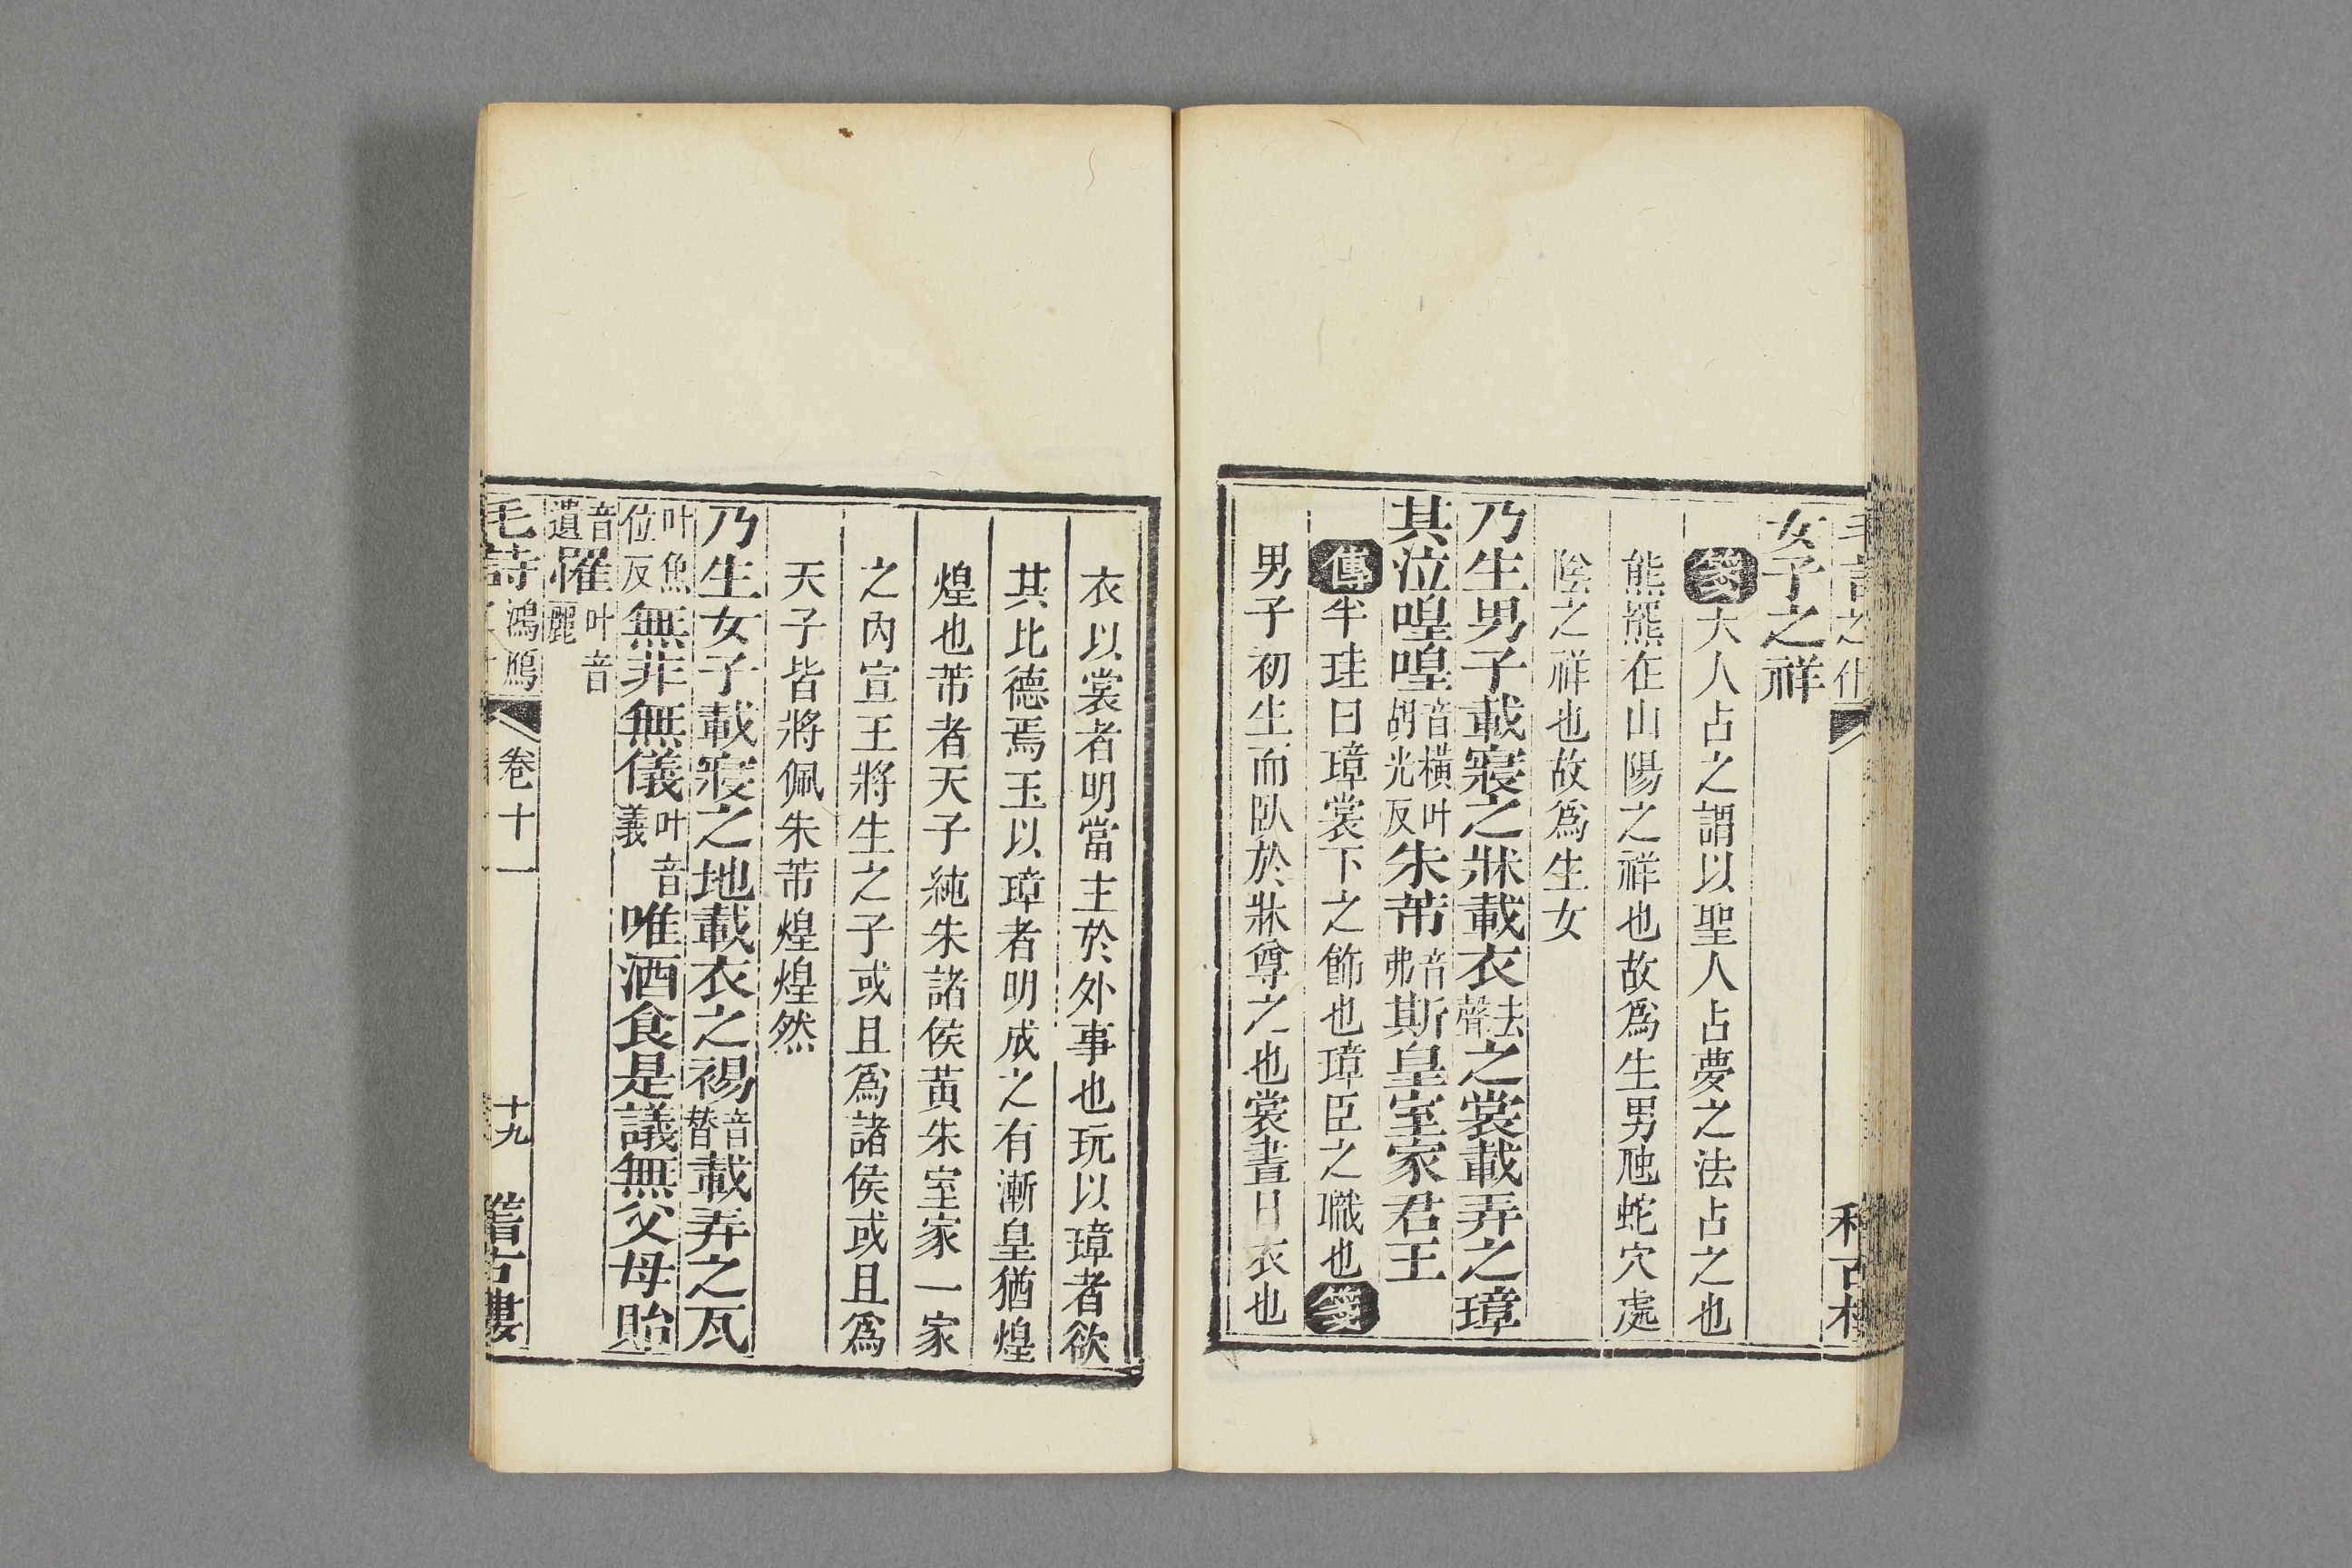 女子之祥
箋大人占之謂以聖人占夢之法占之也
熊羆在山陽之祥也故爲生男虺蛇穴處
隂之祥也故爲生女
乃生男子載寢之牀載衣去聲之裳載弄之璋
其泣喤喤音橫叶胡光反朱芾音弗斯皇室家君王
傳半珪曰璋裳下之飾也璋臣之職也箋
男子初生而臥於牀尊之也裳晝日衣也
衣以裳者明當主於外事也玩以璋者欲
其比德焉玉以璋者明成之有漸皇猶煌
煌也芾者天子純朱諸侯黄朱室家一家
之內宣王將生之子或且爲諸侯或且爲
天子皆將佩朱芾煌煌然
乃生女子載寢之地載衣之裼音替載弄之瓦
叶魚位反無非無儀叶音義唯酒食是議無父母貽
音遺罹叶音麗
毛詩 鴻鴈 卷十一 十九 稽古樓